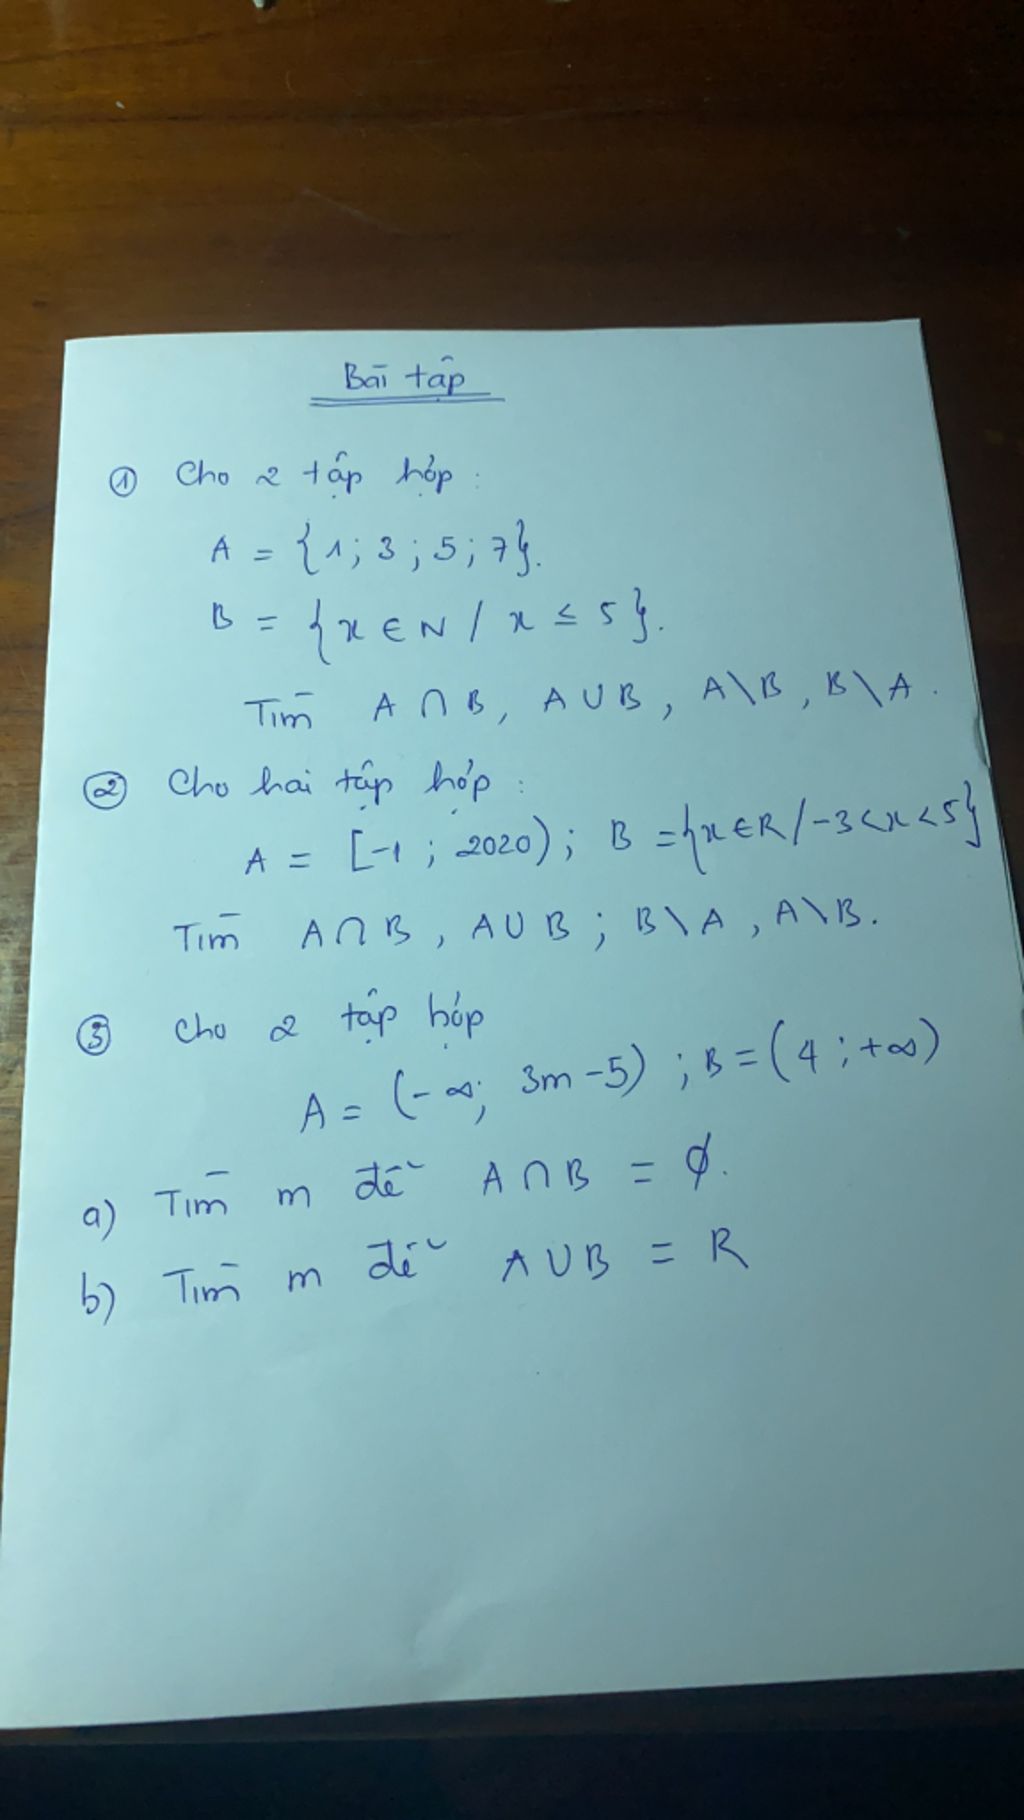 Bài tập
① Cho 2 tập hợp :
A = {1; 3; 5; 7}.
B = {x ∈ N / x ≤ 5}.
Tìm A ∩ B, A ∪ B, A \ B, B \ A.
② Cho hai tập hợp :
A = [-1 ; 2020) ; B = {x ∈ R / -3 < x < 5}
Tìm A ∩ B, A ∪ B ; B \ A, A \ B.
③ Cho 2 tập hợp
A = (-∞; 3m - 5) ; B = (4 ; +∞)
a) Tìm m để A ∩ B = ∅.
b) Tìm m để A ∪ B = R